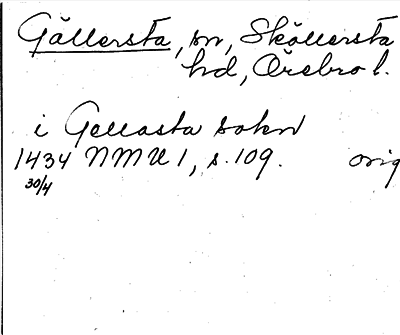 Gällersta, sn, Sköllersta
hd, Örebro l.
i Gellasta sokn
1434 NMU 1, s. 109. orig
30/4